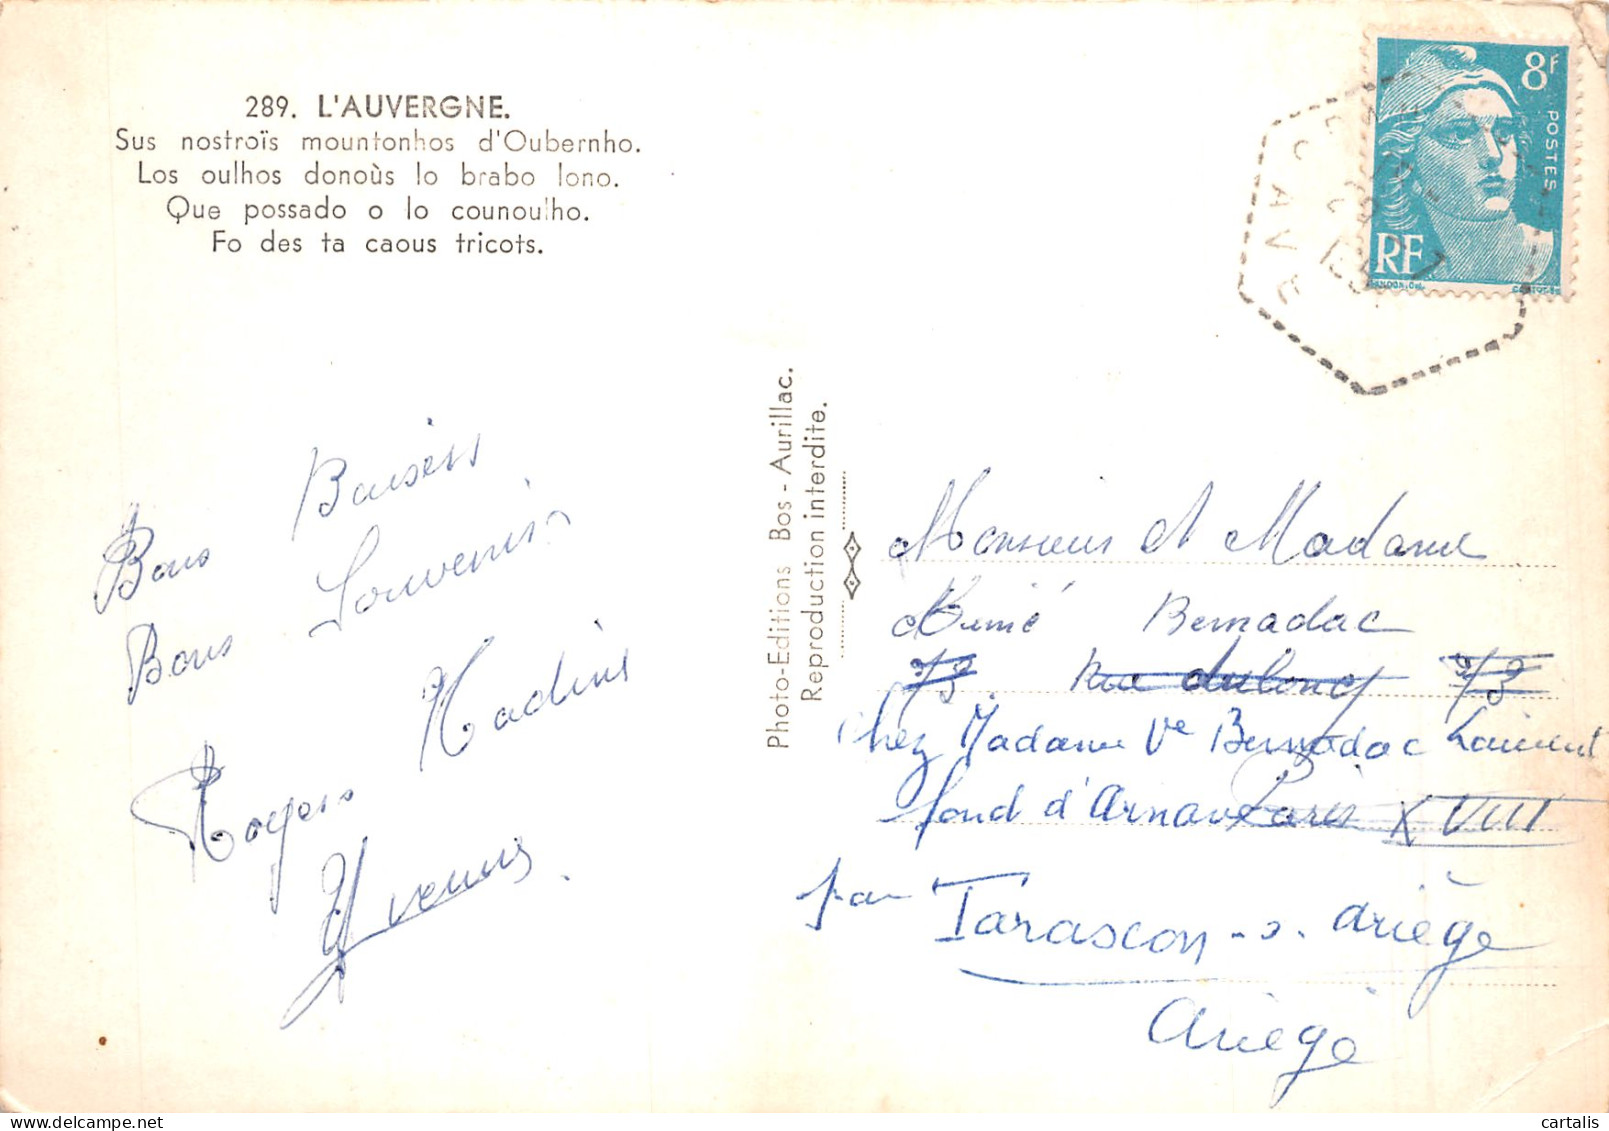 289. L'AUVERGNE.
Sus nostroïs mountonhos d'Oubernho.
Los oulhos donoùs lo brabo lono.
Que possado o lo counoulho.
Fo des ta caous tricots.
8F
POSTES
RF
Bons Baisers
Bons Souvenirs
Nadine
Rogers
Yvenne
Photo-Editions Bos - Aurillac.
Reproduction interdite.
Monsieur et Madame
Aimé Bernadac
73 Rue duloncy 73
Chez Madame Ve Bernadac Laurent
fond d'Arnave Paris XVIII
par Tarascon-s-ariège
Ariège
cartalis